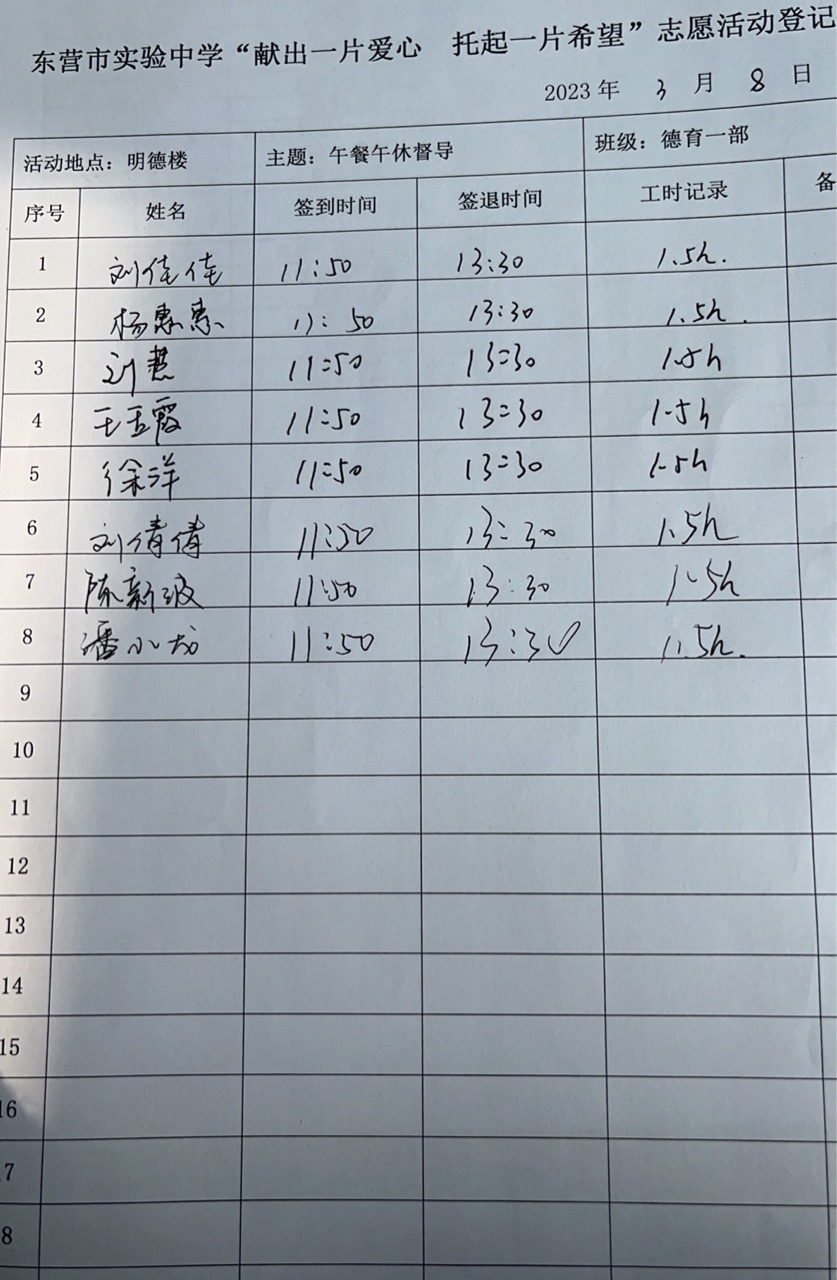 东营市实验中学“献出一片爱心 托起一片希望”志愿活动登记
2023 年 3 月 8 日
活动地点：明德楼 主题：午餐午休督导 班级：德育一部
序号 姓名 签到时间 签退时间 工时记录 备
1 刘佳佳 11:50 13:30 1.5h.
2 杨惠惠 11:50 13:30 1.5h.
3 刘慧 11:50 13:30 1.5h
4 王玉霞 11:50 13:30 1.5h
5 徐洋 11:50 13:30 1.5h
6 刘倩倩 11:50 13:30 1.5h
7 陈新波 11:50 13:30 1.5h
8 潘小龙 11:50 13:30 1.5h.
9
10
11
12
13
14
15
16
7
8